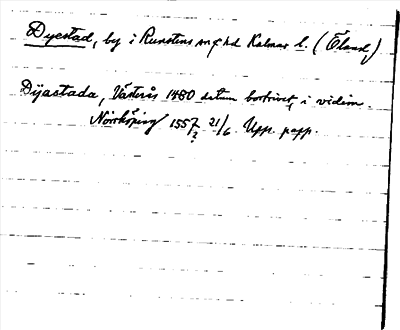 Dyestad, by i Runstens sn o hd Kalmar l. (Öland)
Dijastada, Västerås 1480 datum bortrivet, i vidim.
Norrköping 1557 21/6 Upp. papp.
?